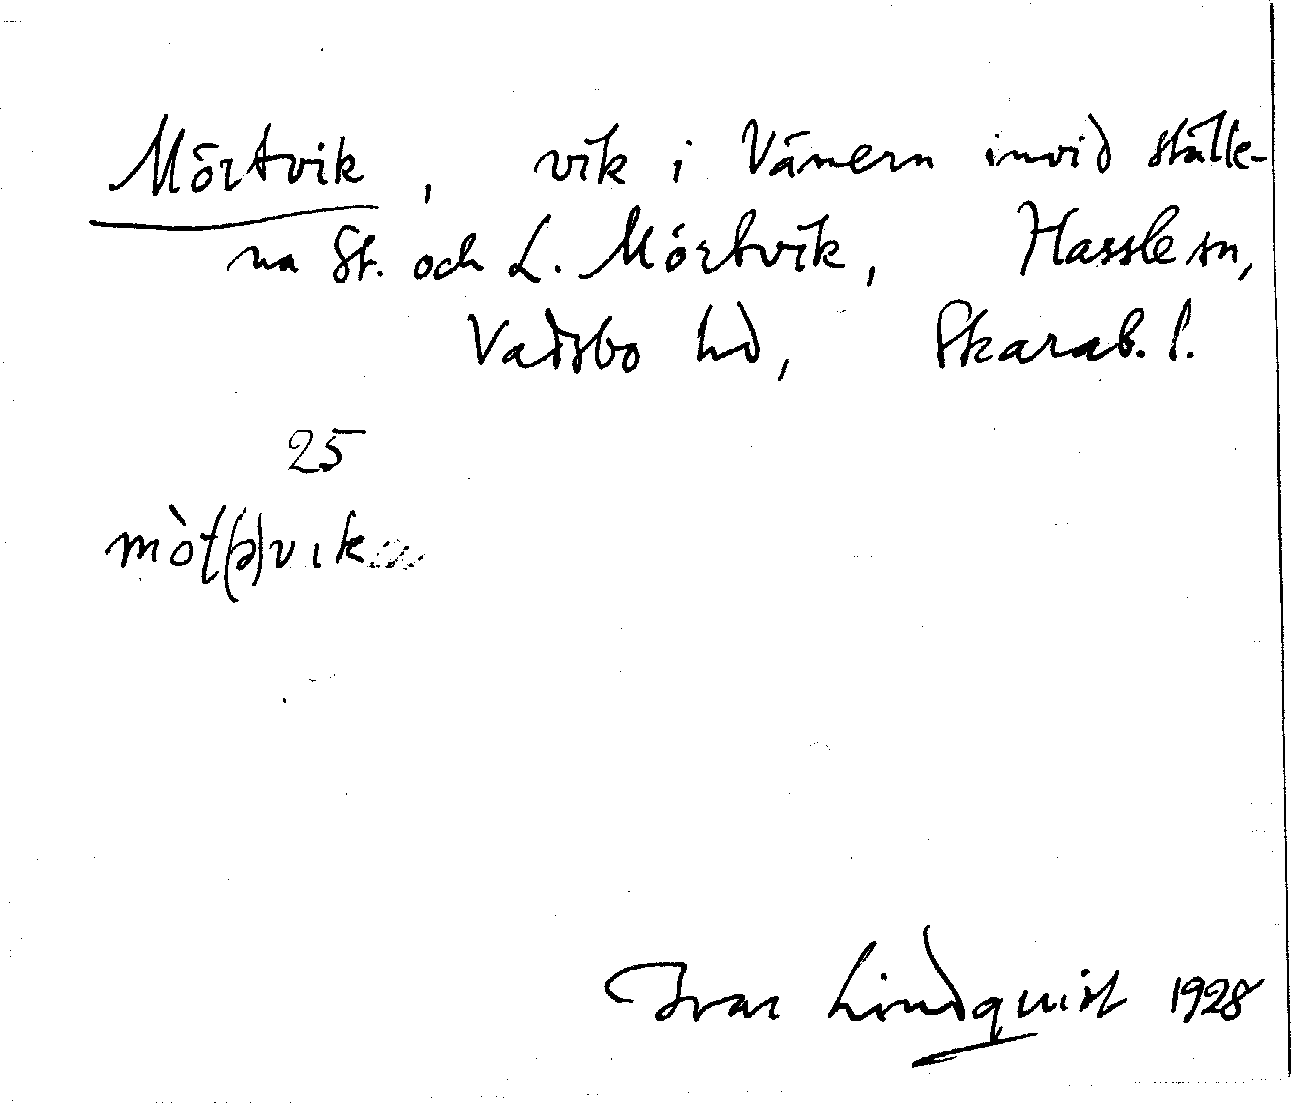 Mörtvik, vik i Vänern invid ställe-
na St. och L. Mörtvik, Hassle sn,
Vadsbo hd, Skarab. l.
25
Ivar Lindquist 1928